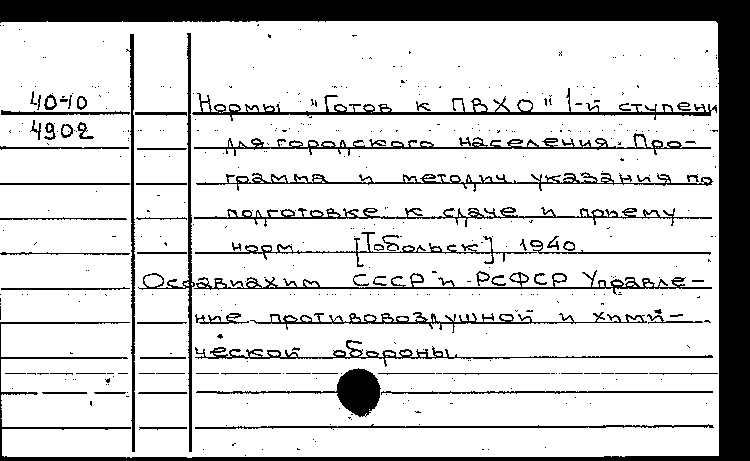 40-10
4902
Нормы "Готов к ПВХО" 1-й ступени
для городского населения. Про-
грамма и методич. указания по
подготовке к сдаче и приему
норм. [Тобольск], 1940.
Осоавиахим СССР и РСФСР Управле-
ние противовоздушной и хими-
ческой обороны